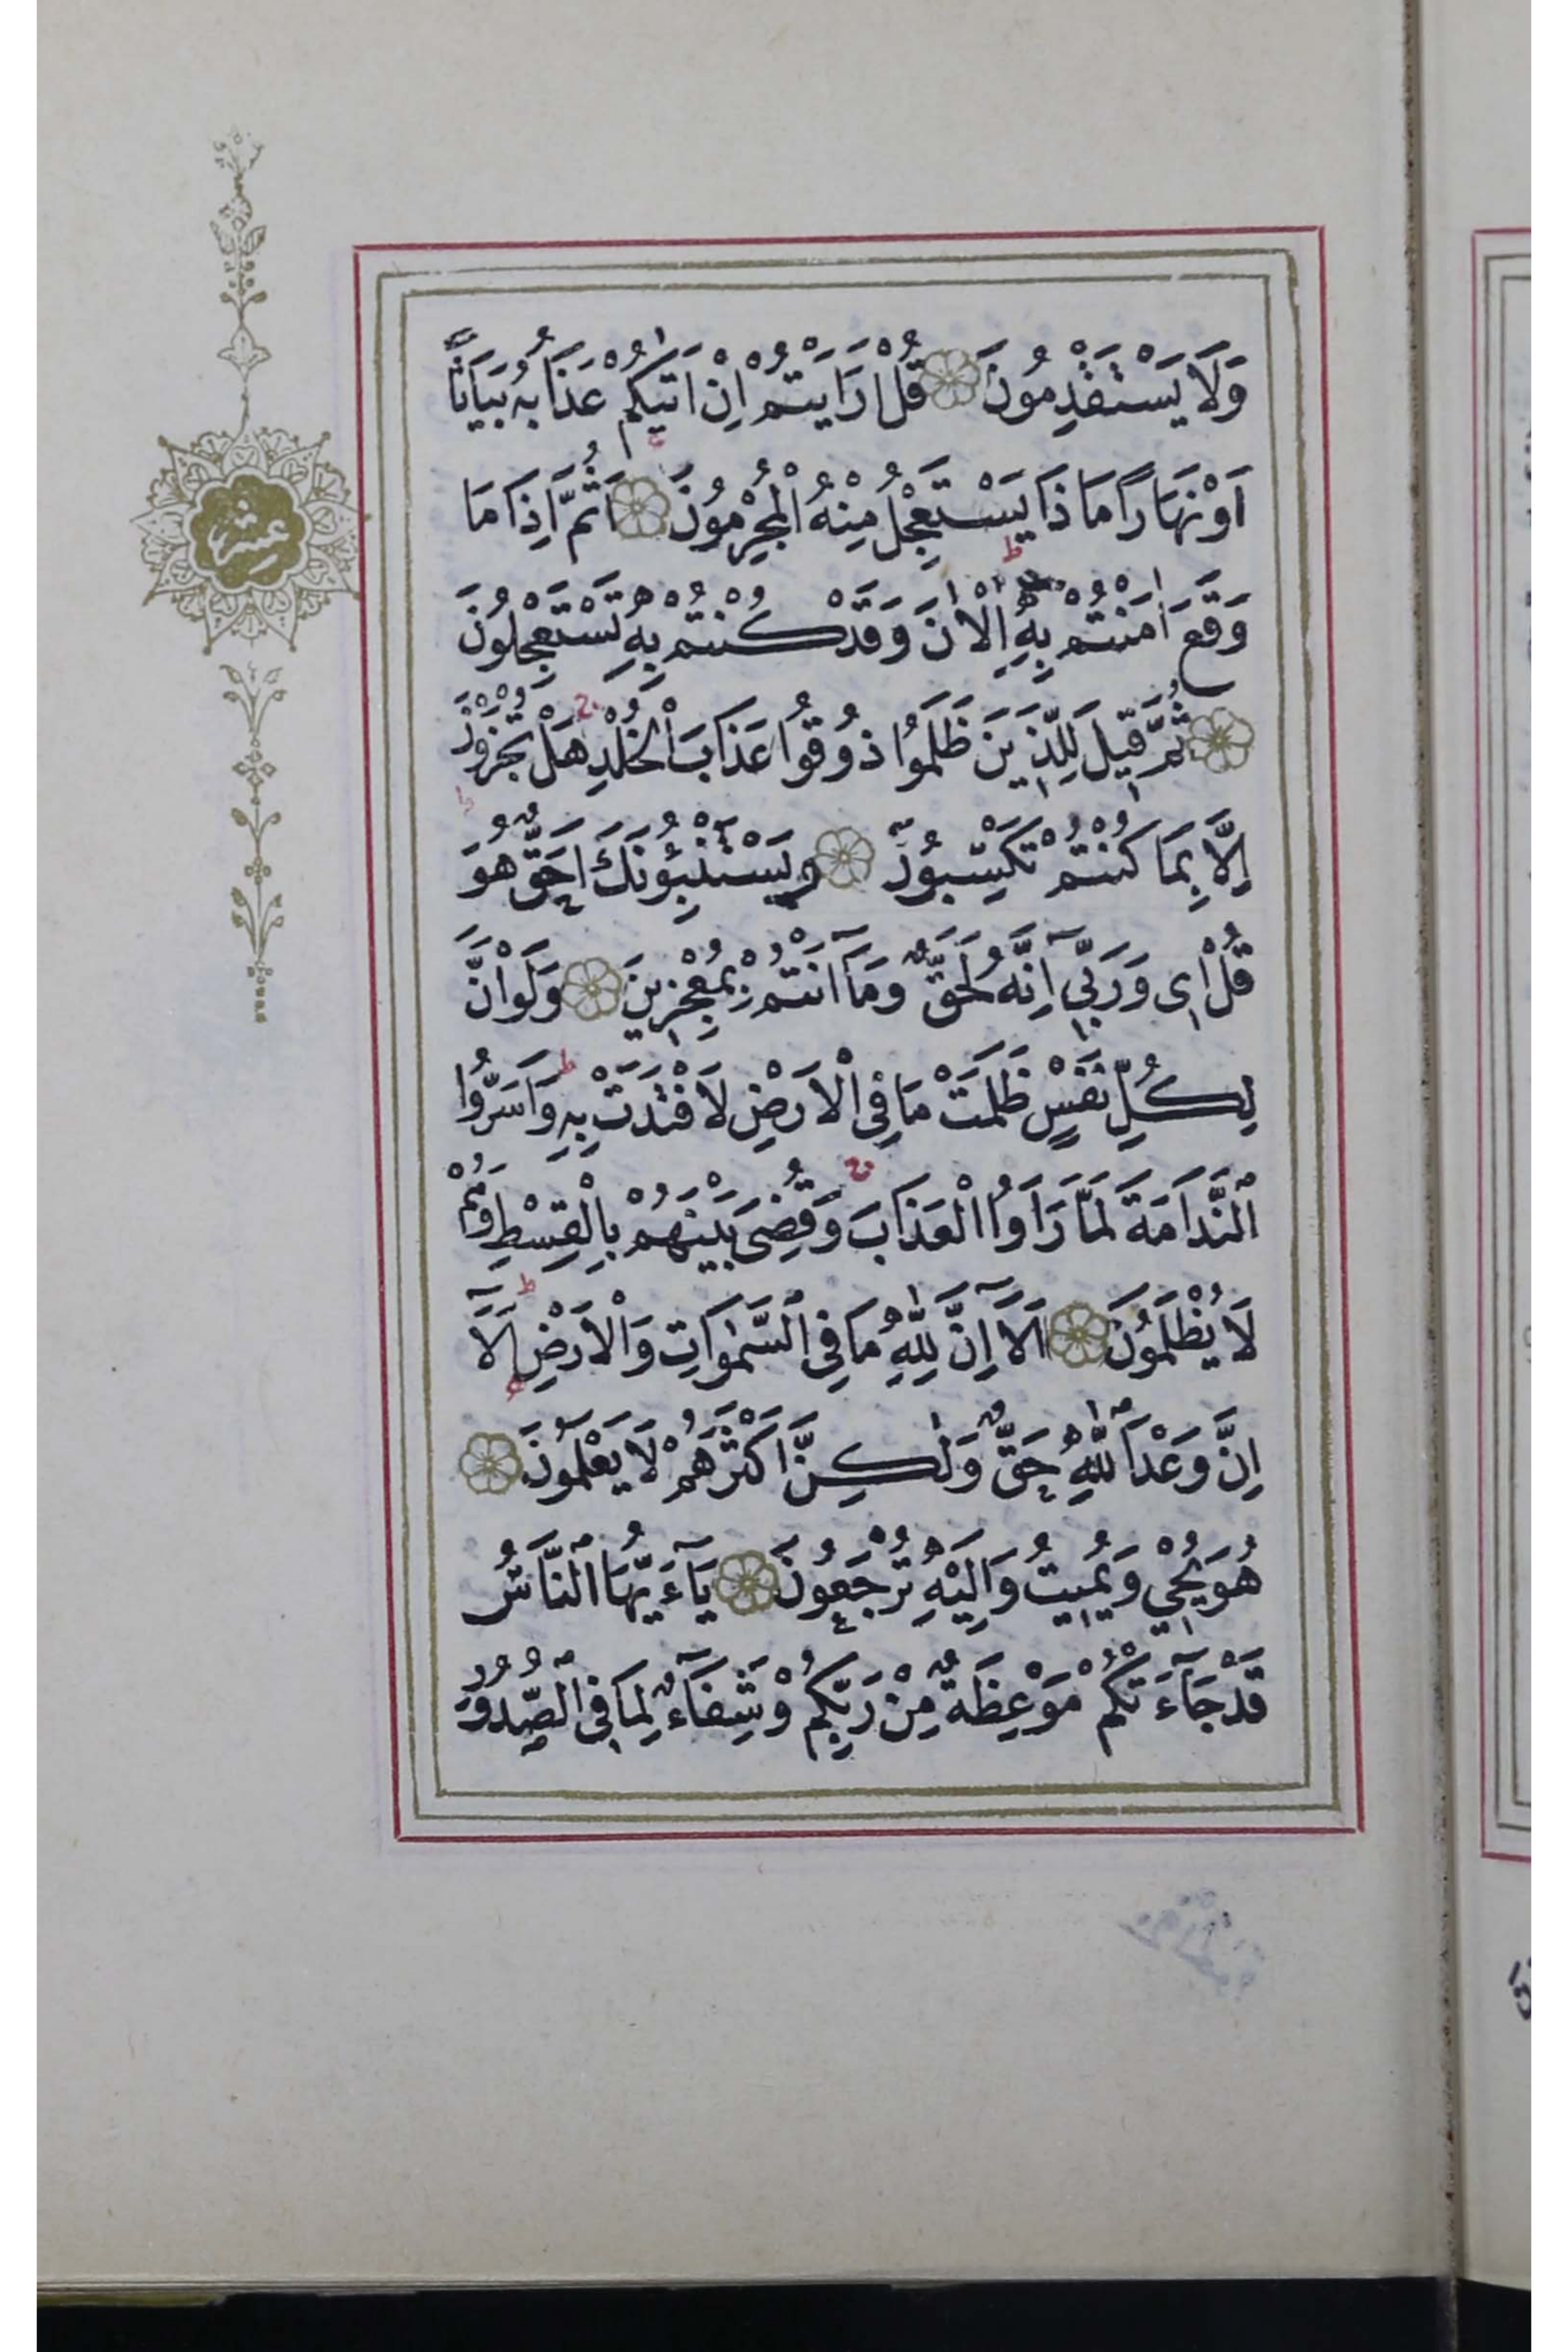 وَلَا يَسْتَقْدِمُونَ قُلْ اَرَاَيْتُمْ اِنْ اَتٰيكُمْ عَذَابُهُ بَيَاتًا
اَوْ نَهَارًا مَاذَا يَسْتَعْجِلُ مِنْهُ الْمُجْرِمُونَ اَثُمَّ اِذَا مَا
وَقَعَ اٰمَنْتُمْ بِهِ اٰلْاٰنَ وَقَدْ كُنْتُمْ بِهِ تَسْتَعْجِلُونَ
ثُمَّ قِيلَ لِلَّذِينَ ظَلَمُوا ذُوقُوا عَذَابَ الْخُلْدِ هَلْ تُجْزَوْنَ
اِلَّا بِمَا كُنْتُمْ تَكْسِبُونَ وَيَسْتَنْبِؤُنَكَ اَحَقٌّ هُوَ
قُلْ اِى وَرَبِّي اِنَّهُ لَحَقٌّ وَمَا اَنْتُمْ بِمُعْجِزِينَ وَلَوْ اَنَّ
لِكُلِّ نَفْسٍ ظَلَمَتْ مَا فِى الْاَرْضِ لَافْتَدَتْ بِهِ وَاَسَرُّوا
النَّدَامَةَ لَمَّا رَاَوُا الْعَذَابَ وَقُضِىَ بَيْنَهُمْ بِالْقِسْطِ وَهُمْ
لَا يُظْلَمُونَ اَلَا اِنَّ لِلّٰهِ مَا فِى السَّمٰوَاتِ وَالْاَرْضِ اَلَا
اِنَّ وَعْدَ اللّٰهِ حَقٌّ وَلٰكِنَّ اَكْثَرَهُمْ لَا يَعْلَمُونَ
هُوَ يُحْيِي وَيُمِيتُ وَاِلَيْهِ تُرْجَعُونَ يَآءَيُّهَا النَّاسُ
قَدْ جَآءَتْكُمْ مَوْعِظَةٌ مِنْ رَبِّكُمْ وَشِفَآءٌ لِمَا فِى الصُّدُورِ
عشر